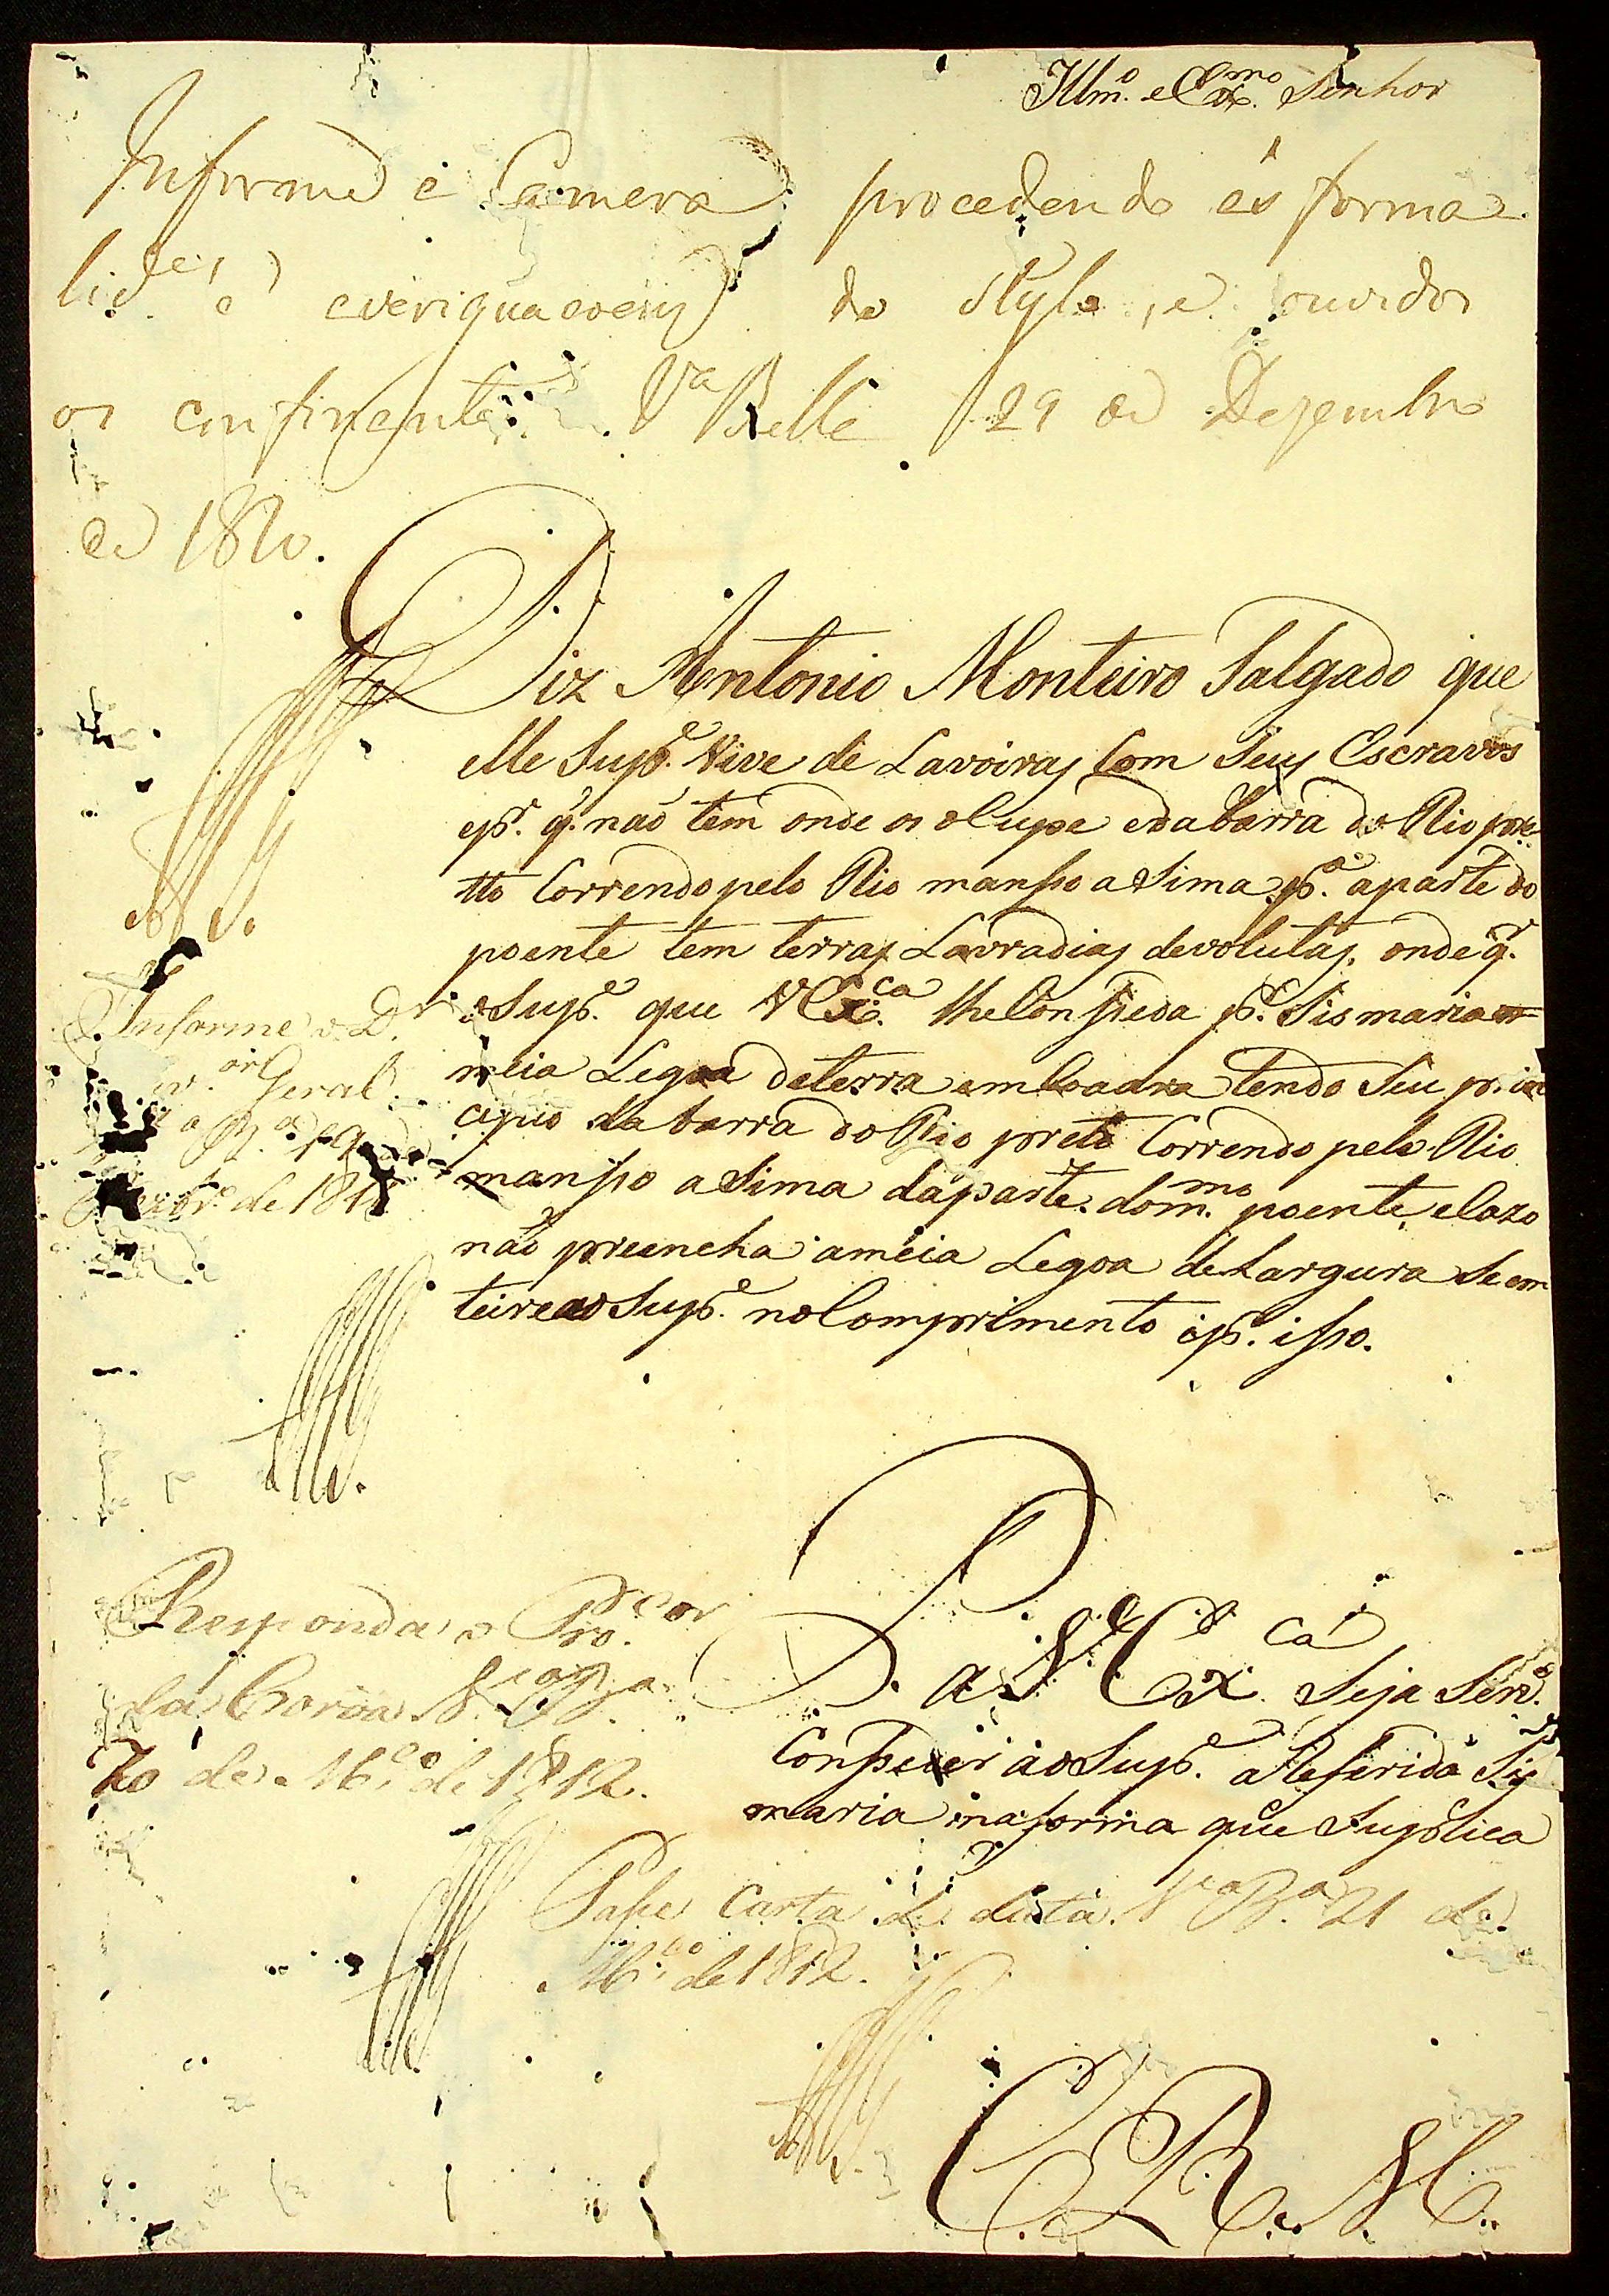 Illm.º e Ex.mo Senhor
Informe a Camera procedendo ás forma-
lid.es e averiguacoens do stylo, e ouvidos
os confinantes. V.a Bella 29 de Dezembro
de 1810.
Diz Antonio Monteiro Salgado que
elle Sup.e Vive de Lavoiras Com Seus Escravos
ep.r q.' naõ tem onde os oCupe edabarra do Rio pre
tto Correndo pelo Rio manso aSima p.a aparte do
poente tem terras Lavradias devolutas, onde q.r
oSup.e que VEx.ca lheConsseda p.r Sismaria
meia Legoa deterra emCoadra tendo Seu prin
cipio da barra do Rio preto Correndo pelo Rio
mansso aSima daparte dom.mo poente, eCazo
naõ preencha ameia Legoa deLargura Seem
teire aoSup.e noComprimento ip.r isso.
Informe o D.r
or Geral
de 181
P. a V. Ex.ca Seja Serv.o
Consseder aoSup.e aReferida Sis
maria naforma que Suplica
Responda o Pro.cor
da Coroa. V.a B.a
20 de M.ço de 1812.
Passe Carta de data. V.a B.a 21 de
M.ço de 1812.
E. R. M.